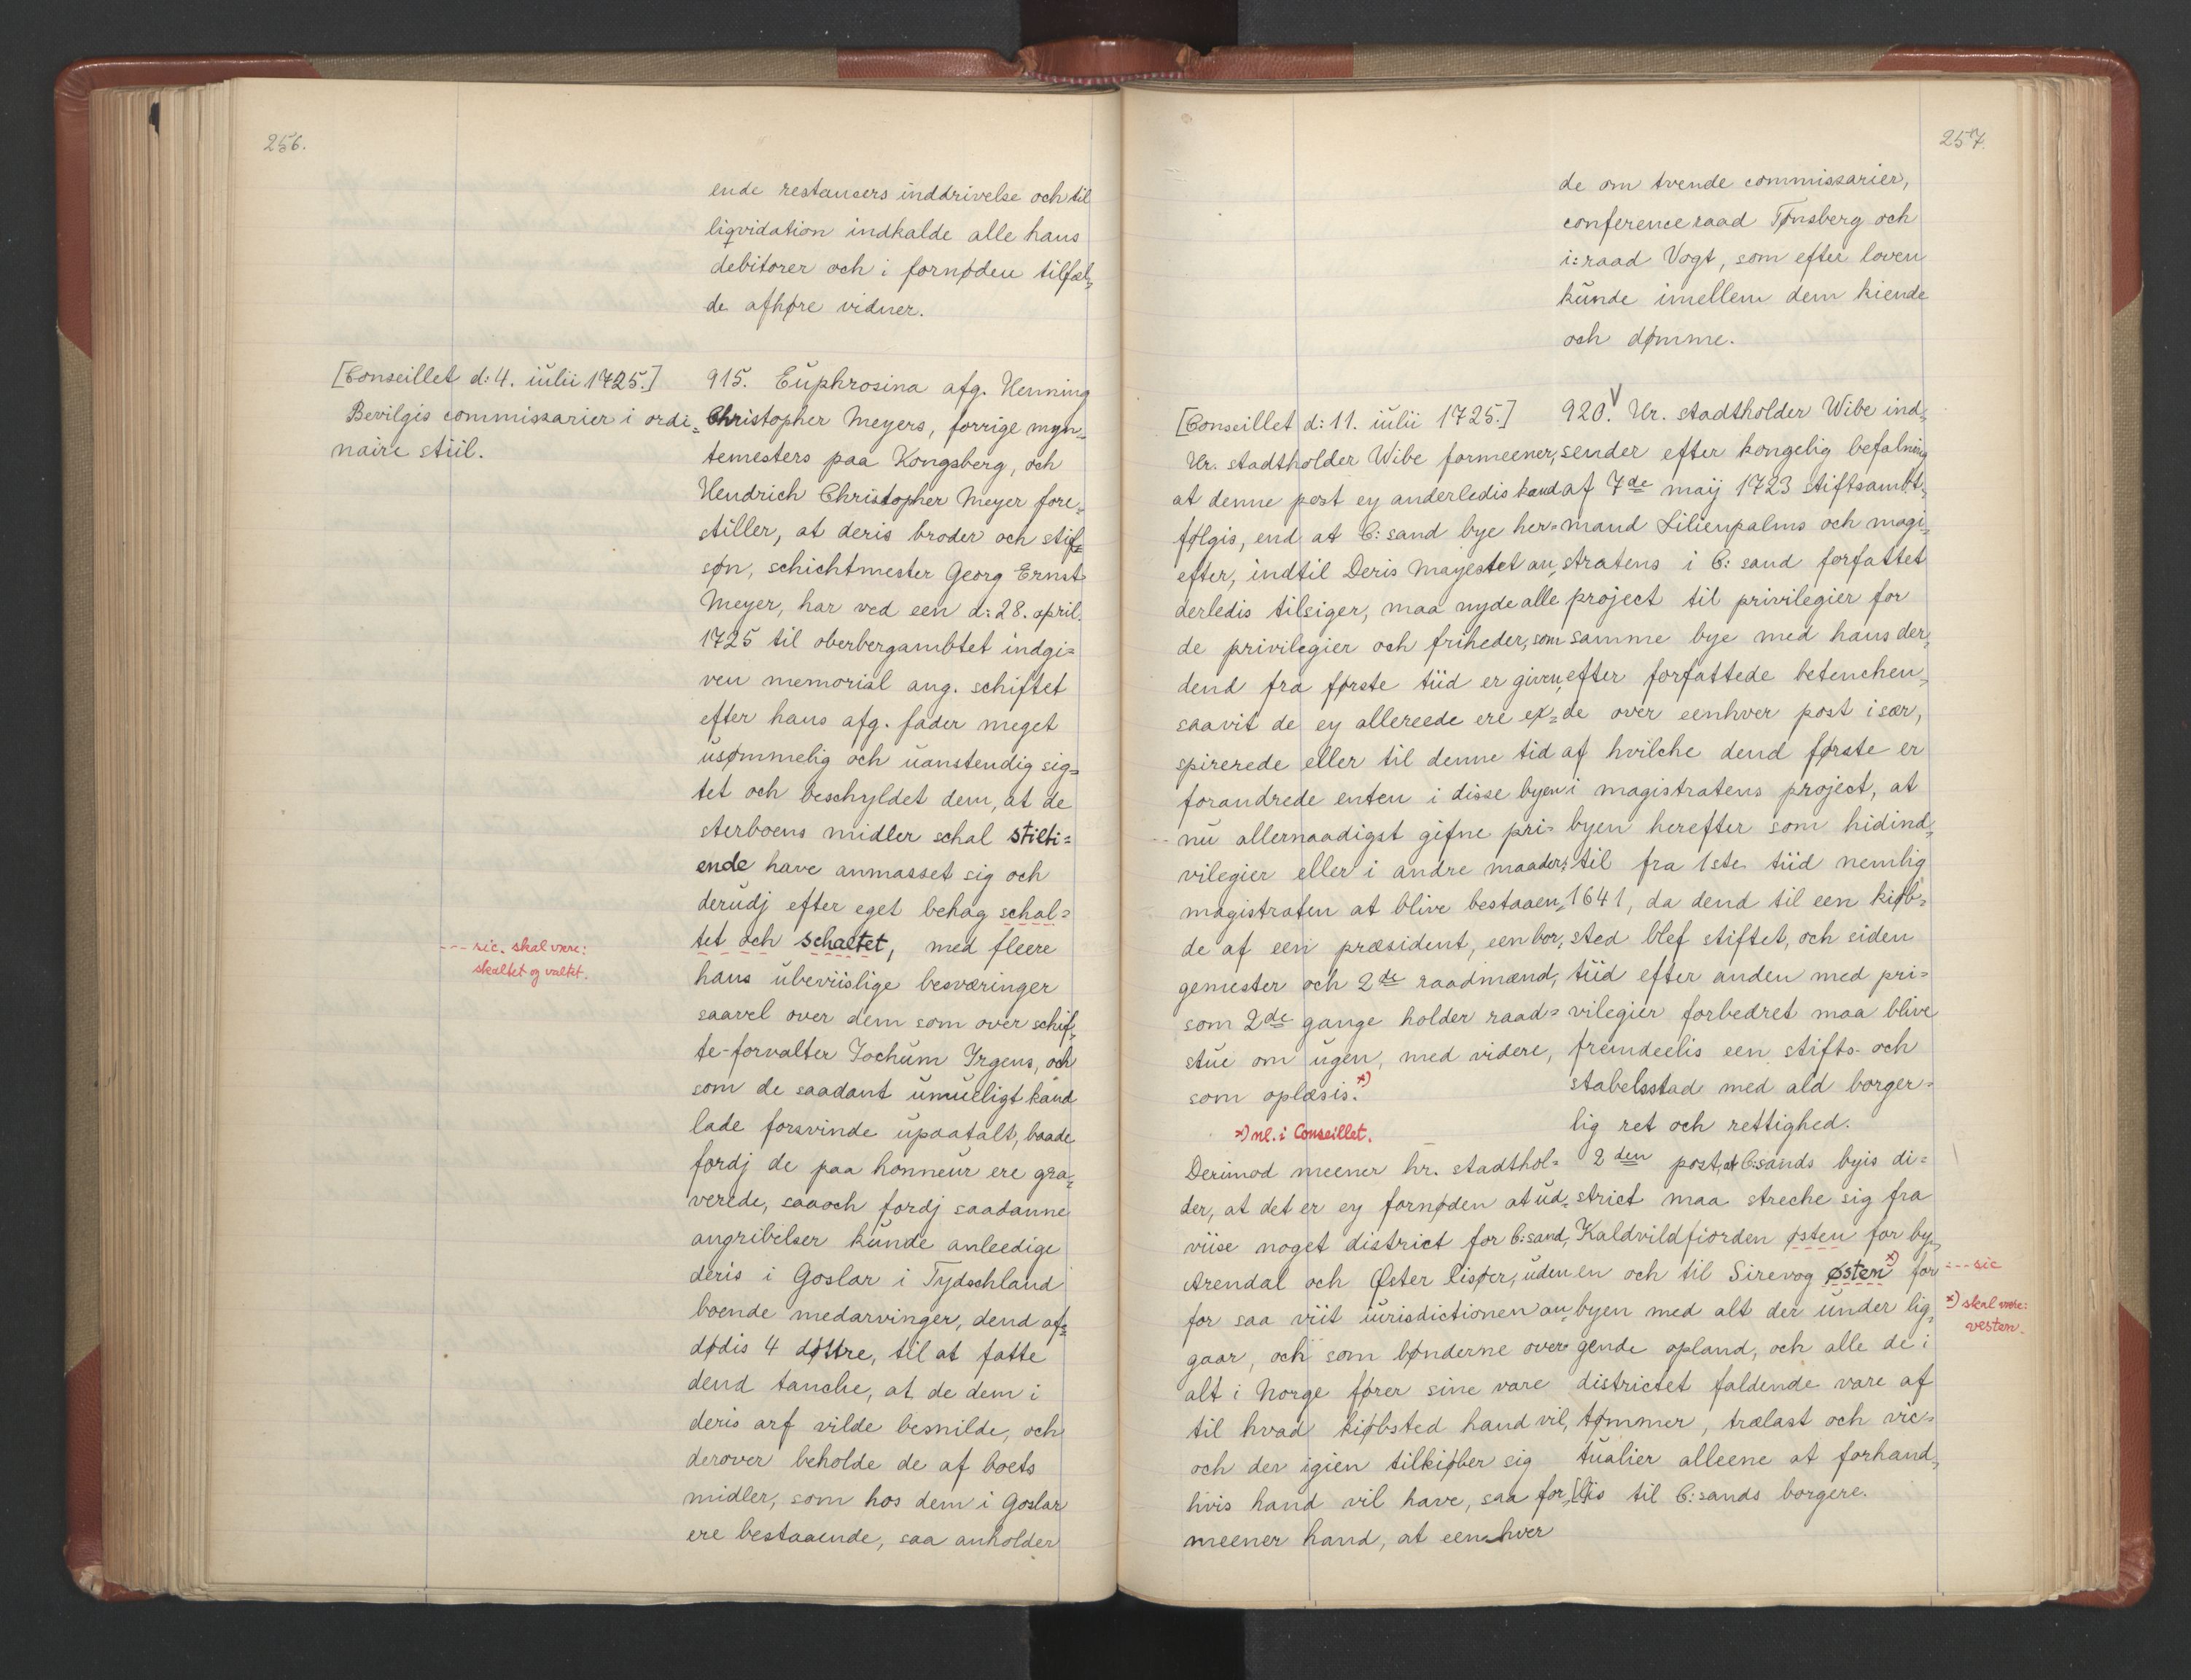 256.
ende restancers inddrivelse och til
liqvidation indkalde alle hans
debitorer och i fornøden tilfæl„
de afhøre vidner.
[Conseillet d: 4. iulii 1725.]
Bevilgis commissarier i ordi„
naire stiil.
915. Euphrosina afg. Henning
Christopher Meyers, forrige myn„
temesters paa Kongsberg, och
Hendrich Christopher Meyer fore„
stiller, at deris broder och stif„
søn, schichtmester Georg Ernst
Meyer, har ved een d: 28. april.
1725 til oberbergambtet indgi=
ven memorial ang. schiftet
efter hans afg. fader meget
usømmelig och uanstendig sig=
tet och beschyldet dem, at de
sterboens midler schal stilti=
ende have anmasset sig och
derudj efter eget behag schal=
tet och schaltet, med fleere
--- sic. skal være:
skaltet og valtet.
hans ubeviislige besværinger
saavel over dem som over schif„
te-forvalter Jochum Irgens, och
som de saadant umueligt kand
lade forsvinde upaatalt, baade
fordj de paa honneur ere gra„
verede, saaoch fordj saadanne
angribelser kunde anleedige
deris i Goslar i Tydschland
boende medarvinger, dend af„
dødis 4 døttre, til at fatte
dend tanche, at de dem i
deris arf vilde besnilde, och
derover beholde de af boets
midler, som hos dem i Goslar
ere bestaaende, saa anholder
257.
de om tvende commissarier,
conferenceraad Tønsberg och
i: raad Vogt, som efter loven
kunde imellem dem kiende
och dømme.
[Conseillet d: 11. iulii 1725.]
Hr. stadtholder Wibe formeener,
at denne post ey anderledis kand
følgis, end at C: sand bye her=
efter, indtil Deris Mayestet an„
derledis tilsiger, maa nyde alle
de privilegier och friheder, som
dend fra første tiid er given,
saavit de ey allereede ere ex=
spirerede eller til denne tid
forandrede enten i disse byen
nu allernaadigst gifne pri=
vilegier eller i andre maader;
magistraten at blive bestaaen„
de af een præsident, een bor„
gemester och 2de raadmænd,
som 2de gange holder raad=
stue om ugen, med videre,
som oplæsis. *)
*) nl. i Conseillet.
Derimod meener hr. stadthol=
der, at det er ey fornøden at ud„
viise noget district for C: sand,
Arendal och Øster Lisøer, uden
for saa viit iurisdictionen an„
gaar, och som bønderne over
alt i Norge fører sine vare
til hvad kiøbsted hand vil,
och der igien tilkiøber sig
hvis hand vil have, saa for„
meener hand, at eenhver
920. V Hr. stadtholder Wibe ind„
sender efter kongelig befalning
af 7de maij 1723 stiftsambt„
mand Lilienpalms och magi„
stratens i C: sand forfattet
project til privilegier for
samme bye med hans der„
efter forfattede betenchen„
de over eenhver post i sær,
af hvilche dend første er
i magistratens project, at
byen herefter som hidind„
til fra 1ste tiid nemlig
1641, da dend til een kiøb=
sted blef stiftet, och siden
tiid efter anden med pri=
vilegier forbedret maa blive
fremdeelis een stifts- och
stabelsstad med ald borger=
lig ret och rettighed.
2den post, at C: sands byis di=
strict maa streche sig fra
Kaldvildfiorden østen for by„
en och til Sirevog østen *) for
--- sic
*) skal være:
vesten.
byen med alt der under lig„
gende opland, och alle de i
districtet faldende vare af
tømmer, trælast och vic=
tualier alleene at forhand„
[l]is til C: sands borgere.